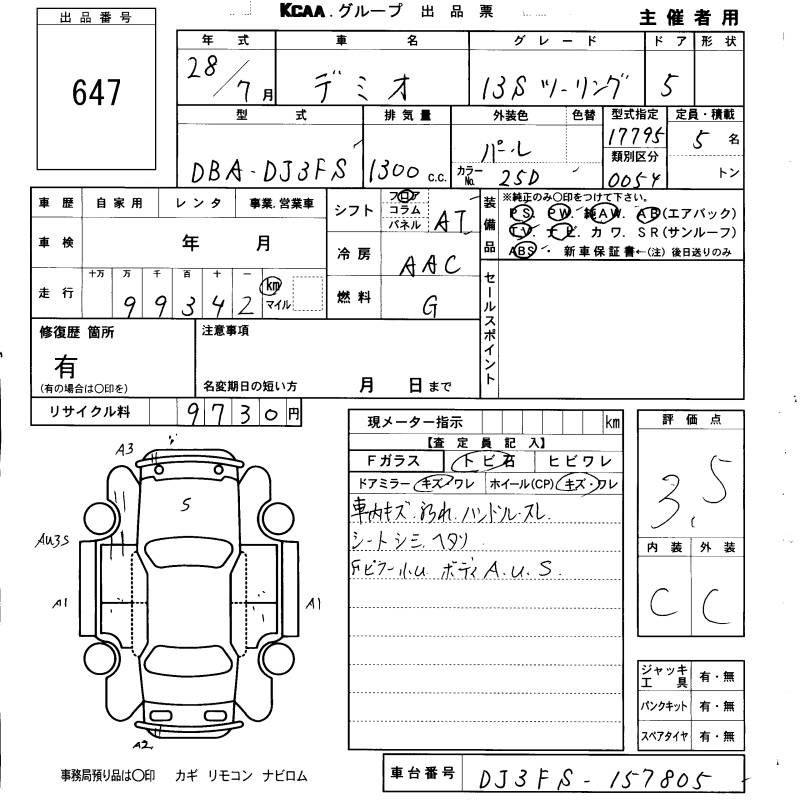 KCAA.グループ 出品票
主催者用
出品番号
647
年式 車名 グレード ドア 形状
28/7月 デミオ 13S ツーリング 5
型式 排気量 外装色 色替 型式指定 定員・積載
DBA-DJ3FS 1300 c.c. パール 17795 5名
カラーNo. 25D 類別区分 0054 トン
車歴 自家用 レンタ 事業.営業車
車検 年 月
走行 十万 万 千 百 十 一 km マイル
99342
シフト フロア コラム パネル AT
冷房 AAC
燃料 G
装備品
※純正のみ〇印をつけて下さい。
PS. PW. 純AW. AB(エアバック)
TV. ナビ. カワ. SR(サンルーフ)
ABS・ 新車保証書←(注)後日送りのみ
セールスポイント
修復歴 箇所
有
(有の場合は〇印を)
注意事項
名変期日の短い方 月 日まで
リサイクル料 9730円
現メーター指示 km
【査定員記入】
Fガラス トビ石 ヒビワレ
ドアミラー キズ・ワレ ホイール(CP) キズ・ワレ
車内キズ.汚れ.ハンドル.スレ.
シートシミ.ヘタリ
FビフーハU ボディA.U.S.
評価点
3.5
内装 外装
C C
ジャッキ工具 有・無
パンクキット 有・無
スペアタイヤ 有・無
A3
S
AU3S
A1
A1
A2
事務局預り品は〇印 カギ リモコン ナビロム
車台番号 DJ3FS-157805